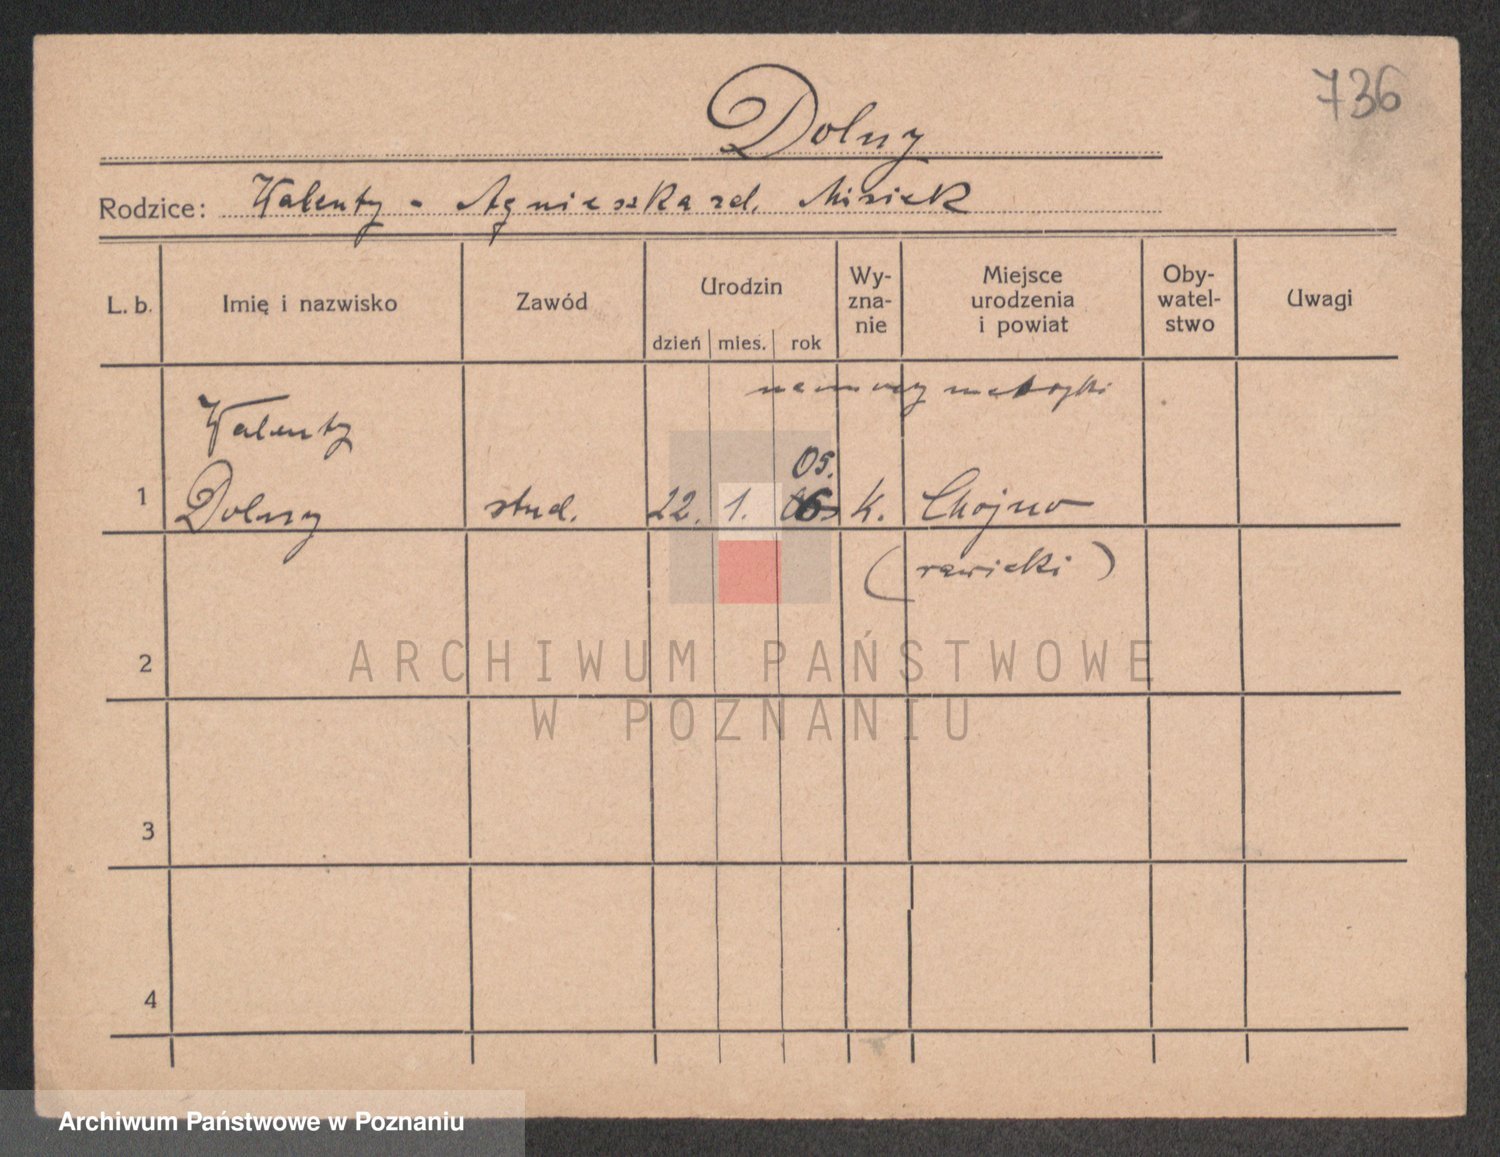 736
Dolny
Rodzice: Walenty - Agnieszka zd. Misiek
L. b. Imię i nazwisko Zawód Urodzin Wy-zna-nie Miejsce urodzenia i powiat Oby-watel-stwo Uwagi
dzień mies. rok
metryki
Walenty
05.
1 Dolny stud. 22. 1. 06 k. Chojno
(rawicki)
2
ARCHIWUM PAŃSTWOWE
W POZNANIU
3
4
Archiwum Państwowe w Poznaniu